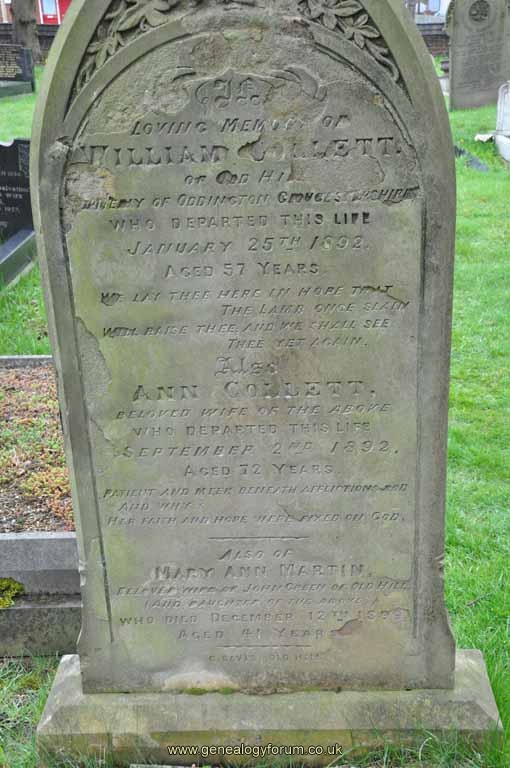 IN
LOVING MEMORY OF
WILLIAM COLLETT.
OF OLD HILL
OF ODDINGTON GLOUCESTERSHIRE
WHO DEPARTED THIS LIFE
JANUARY 25TH 1892.
AGED 57 YEARS.
WE LAY THEE HERE IN HOPE THAT
THE LAMB ONCE SLAIN
WILL RAISE THEE, AND WE SHALL SEE
THEE YET AGAIN.
Also
ANN COLLETT.
BELOVED WIFE OF THE ABOVE
WHO DEPARTED THIS LIFE
SEPTEMBER 2ND 1892.
AGED 72 YEARS.
PATIENT AND MEEK BENEATH AFFLICTIONS ROD
AND WHY?
HER FAITH AND HOPE WERE FIXED ON GOD.
ALSO OF
MARY ANN MARTIN.
BELOVED WIFE OF JOHN GREEN OF OLD HILL
(AND DAUGHTER OF THE ABOVE
WHO DIED DECEMBER 12TH
AGED 41 YEARS
OLD HILL
www.genealogyforum.co.uk